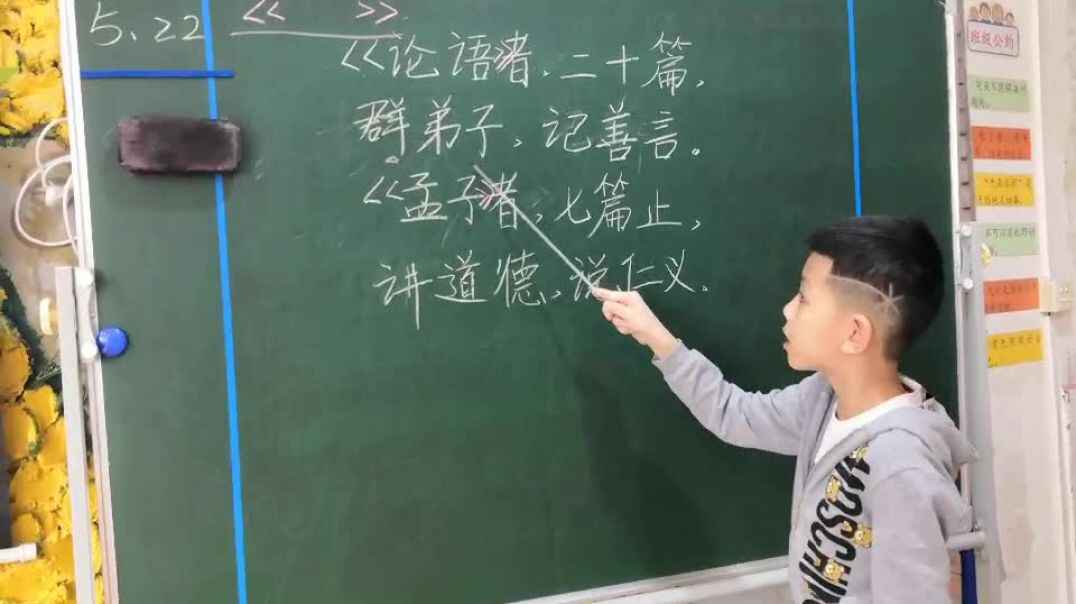 5、22
《 》
《论语》者，二十篇，
群弟子，记善言。
《孟子》者，七篇止，
讲道德，说仁义。
班级公约
MOSCHINO